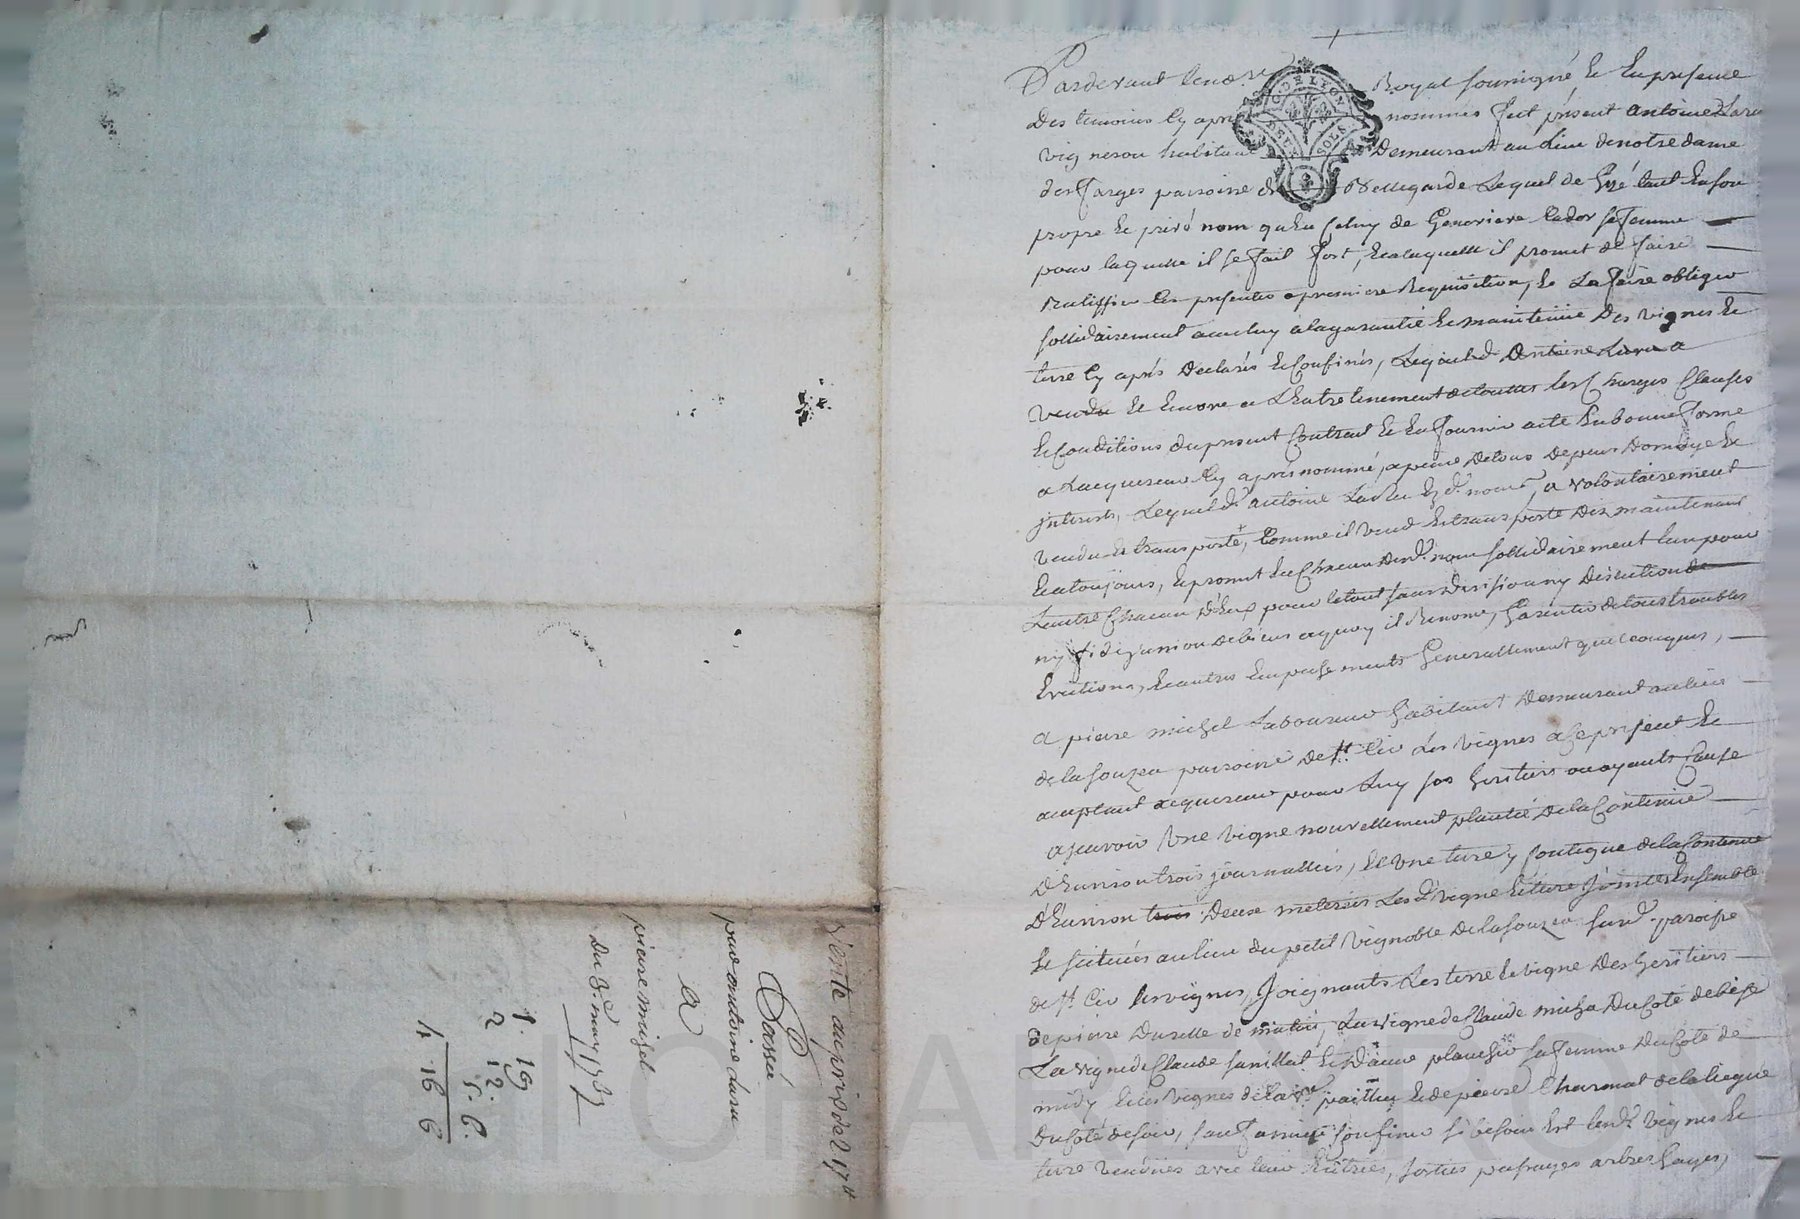 Pardevant le no.re Royal soussigné et en presence
Des temoins Cy apres nommés fut présent antoine Lara
vigneron habitant Demeurant au Lieu de notre dame
des farges paroisse de Bellegarde Lequel de gré tant en son
propre et privé nom qu'en celuy de Genevieve sa femme
pour laquelle il se fait fort, et a laquelle il promet de faire
Ratiffier les presentes a premiere Requisition, et La faire obliger
sollidairement avec luy a la garantie et maintenüe Des vignes et
terre Cy aprés Declarés et Confinés, Lequel d. Antoine Lara a
vendu et encore a L'entretenement de touttes les Charges Clauses
et Conditions du present Contrat et en fournir acte en bonne forme
a Lacquereur Cy apres nommé, a peine de tous Depens Domage et
interests, Lequel d. antoine Lara esd. noms, a volontairement
vendu et transporté, Comme il vend et transporte Dez maintenant
et a toujours, et promet en Chacun desd. nom sollidairement l'un pour
Lautre Chacun d'Eux pour le tout sans Division ny Discution de
ny fidejussion de biens a quoy il Renonce, Garentir de tous troubles
Evictions, et autres Empeschements Generallement quelconques,
a piere michel Laboureur habitant Demeurant au lieu
de la fouza paroisse de St. Cir Les vignes a Ce present et
acceptant acquereur pour Luy ses heritiers ou ayants Cause
a scavoir Une vigne nouvellement plantée De la Contenüe
D'Environ trois journallées, et Une terre y joutigue de la Contenüe
D'Environ Deux meterées Lesd. vigne et terre Jointes Ensemble
et scituées au lieu du petit vignoble De la fouza surd. paroisse
de St. Cir Les vignes, Joignants Les terre et vigne Des heritiers
de piere Durelle de matin, La vigne de Claude micha Du Coté de bise
La vigne de Claude et D'anne plancher sa femme Du Coté de
midy et Les vignes de et de pierre Charmat de la liegue
Du Coté de soir, sauf a mieux Confiner sy besoin Est Lesd. vignes et
terre vendües avec leur Entrées, sorties pasquages arbres hayes,
G. DE LYON
DEUX SOLS
Vente du prix de 171 tt
Passée
par antoine dara
a
piere michel
du 8e. may 1737
1. 19
2 12
5. 6.
4 16 6